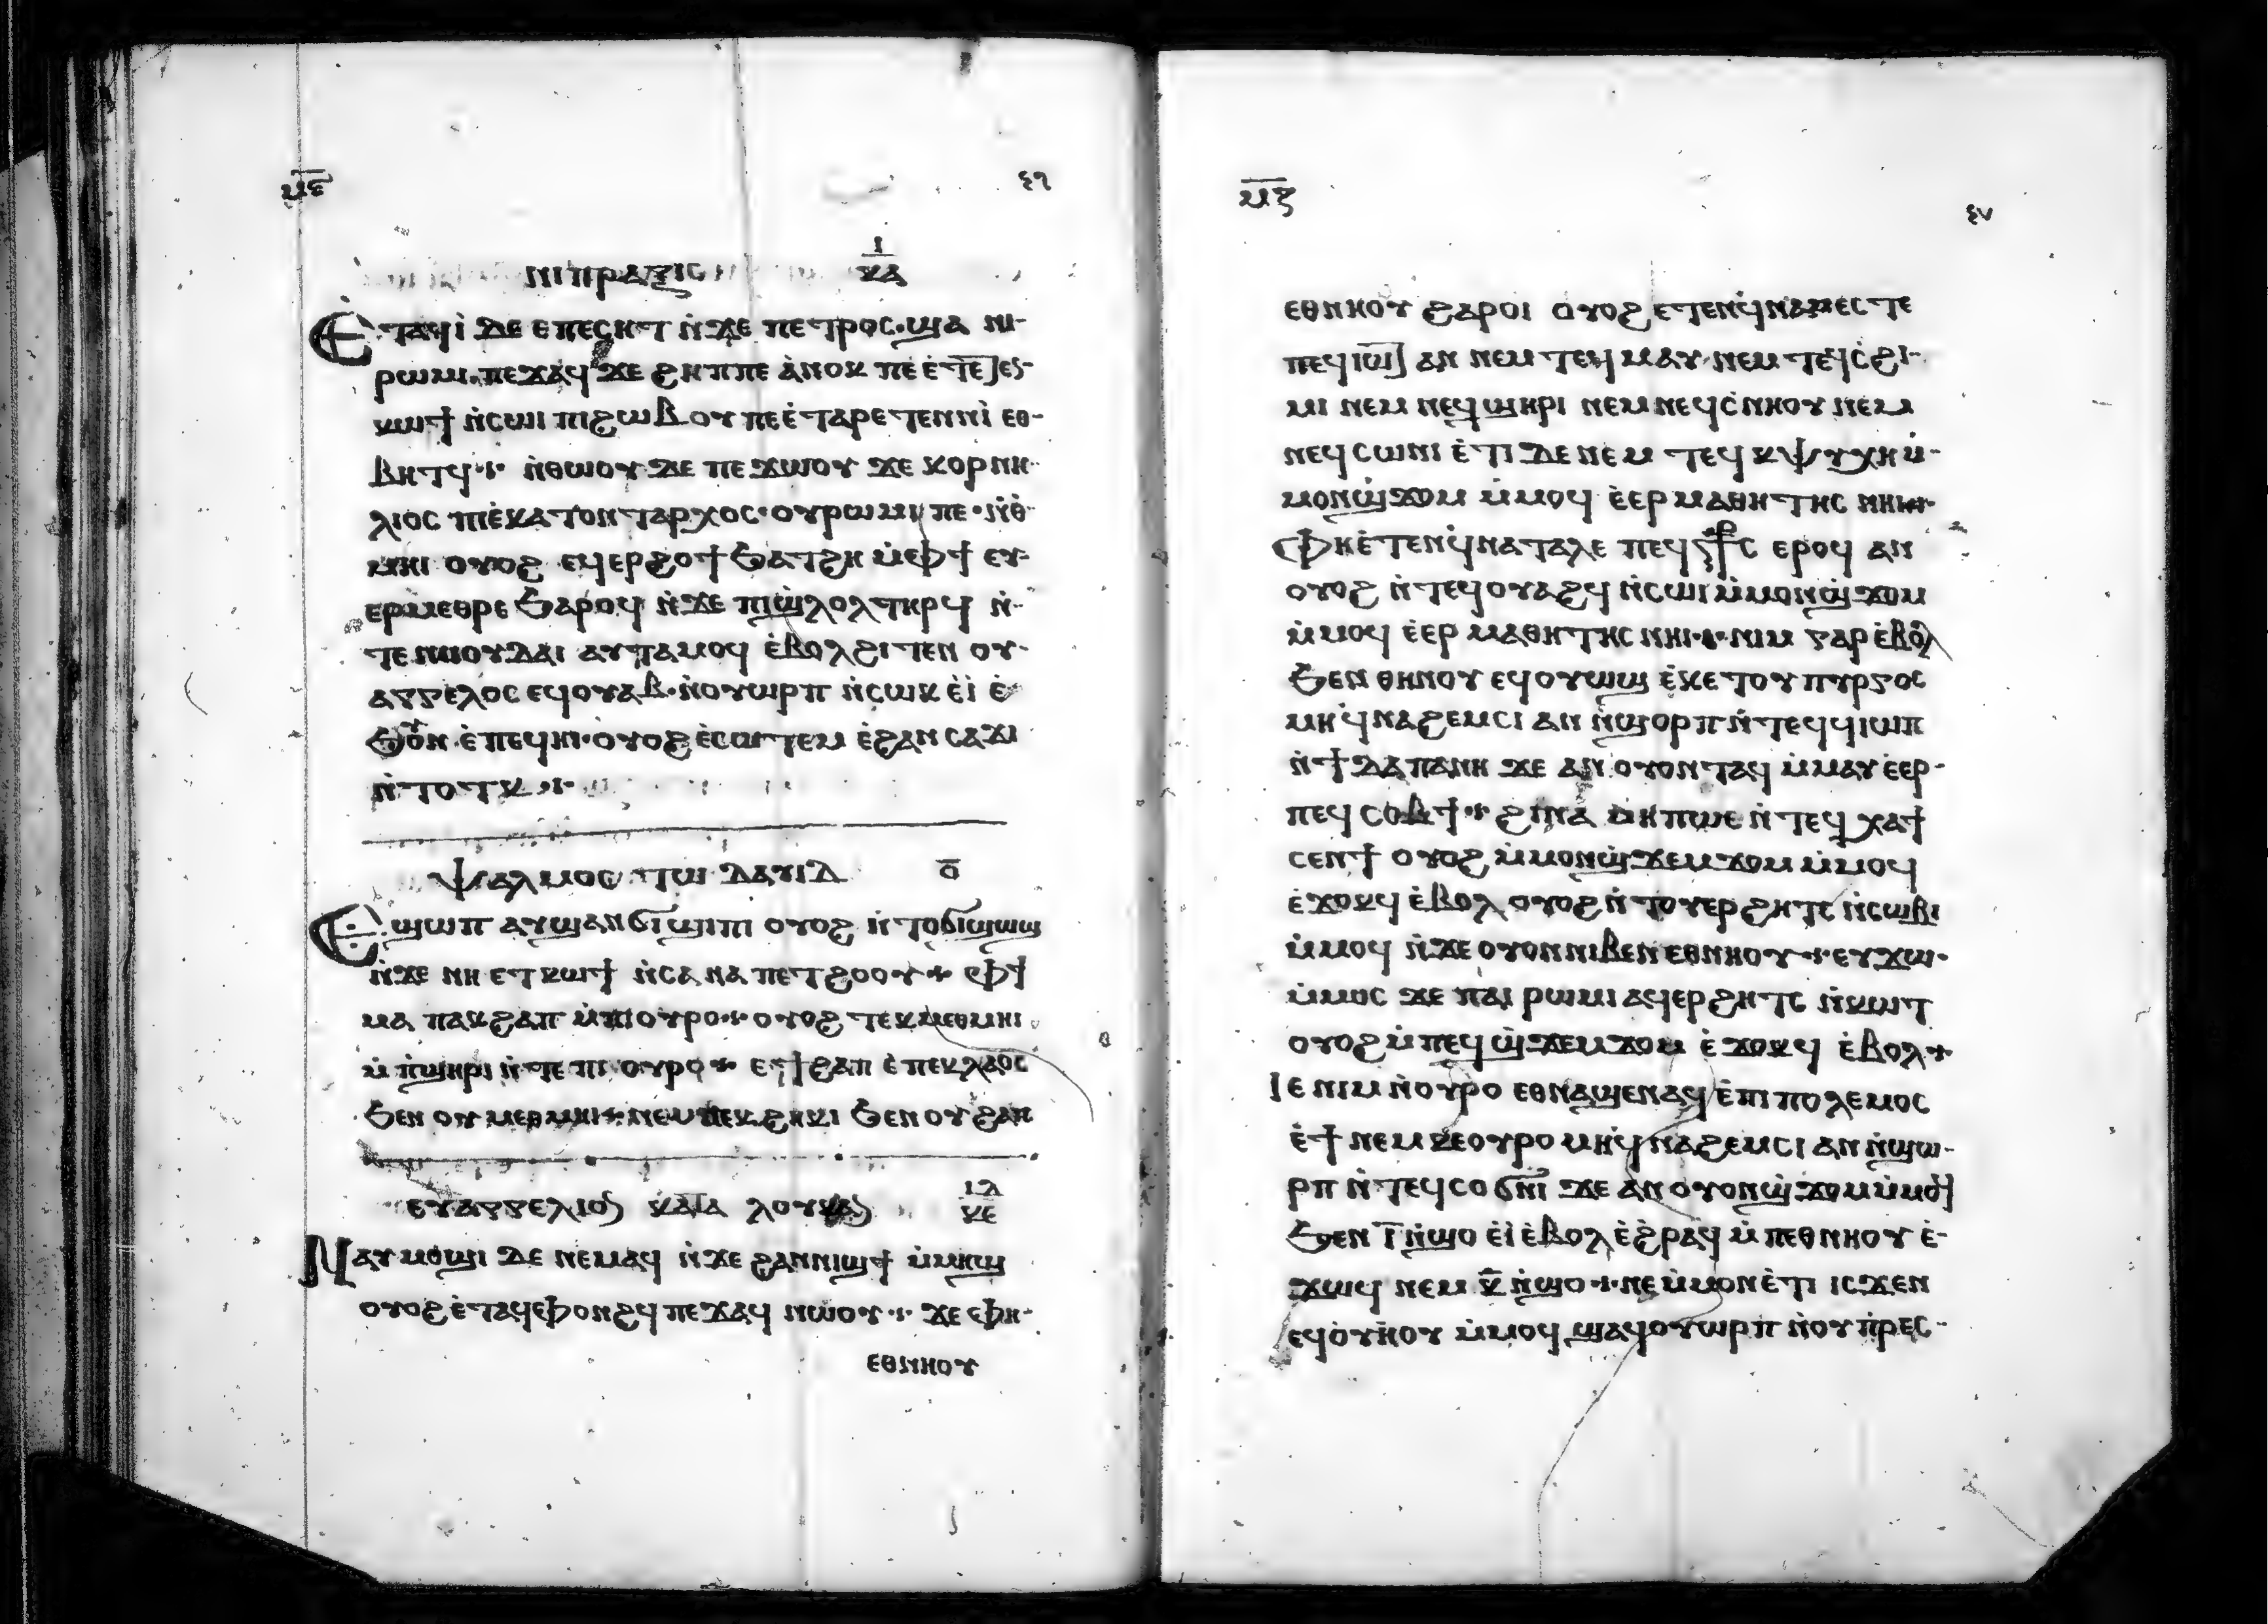 ⲙ̅ⲋ̅
ⲛⲓⲡⲣⲁⲝⲓⲥ ⲓ̅ ⲕ̅ⲁ̅
Ⲉ̀ⲧⲁϥⲓ̀ ⲇⲉ ⲉⲡⲉⲥⲏⲧ ⲛ̀ϫⲉ ⲡⲉⲧⲣⲟⲥ· ϣⲁ ⲛⲓ-
ⲣⲱⲙⲓ· ⲡⲉϫⲁϥ ϫⲉ ϩⲏⲡⲡⲉ ⲁ̀ⲛⲟⲕ ⲡⲉ ⲉ̀ⲧⲉ
ⲕⲱϯ ⲛ̀ⲥⲱⲓ ⲡⲓϩⲱⲃ ⲟⲩ ⲡⲉ ⲉ̀ⲧⲁⲣⲉⲧⲉⲛⲛⲓ̀ ⲉⲑ-
ⲃⲏⲧϥ ⁘ ⲛ̀ⲑⲱⲟⲩ ⲇⲉ ⲡⲉϫⲱⲟⲩ ϫⲉ ⲕⲟⲣⲛⲏ-
ⲗⲓⲟⲥ ⲡⲓⲉ̀ⲕⲁⲧⲟⲛⲧⲁⲣⲭⲟⲥ· ⲟⲩⲣⲱⲙⲓ ⲡⲉ· ⲛ̀ⲑ̀-
ⲙⲏⲓ ⲟⲩⲟϩ ⲉϥⲉⲣϩⲟϯ ϧⲁⲧϩⲏ ⲙ̀ⲫϯ ⲉⲩ-
ⲉⲣⲙⲉⲑⲣⲉ ϧⲁⲣⲟϥ ⲛ̀ϫⲉ ⲡⲓϣ̀ⲗⲟⲗ ⲧⲏⲣϥ ⲛ̀-
ⲧⲉ ⲛⲓⲓⲟⲩⲇⲁⲓ ⲁⲩⲧⲁⲙⲟϥ ⲉ̀ⲃⲟⲗϩⲓⲧⲉⲛ ⲟⲩ-
ⲁⲅⲅⲉⲗⲟⲥ ⲉϥⲟⲩⲁⲃ· ⲛ̀ⲟⲩⲱⲣⲡ ⲛ̀ⲥⲱⲕ ⲉ̀ⲓ̀ ⲉ̀
ϧⲟⲩⲛ ⲉ̀ⲡⲉϥⲏⲓ· ⲟⲩⲟϩ ⲉ̀ⲥⲱⲧⲉⲙ ⲉ̀ϩⲁⲛⲥⲁϫⲓ
ⲛ̀ⲧⲟⲧⲕ ⁘
ⲯⲁⲗⲙⲟⲥ ⲧⲱ ⲇⲁⲩⲓⲇ ⲟ̅
Ⲉϣⲱⲡ ⲁⲩϣⲁⲛϭⲓϣⲓⲡⲓ ⲟⲩⲟϩ ⲛ̀ⲧⲟϭⲓϣⲱϣ
ⲛ̀ϫⲉ ⲛⲏ ⲉⲧⲕⲱϯ ⲛ̀ⲥⲁ ⲛⲁⲡⲉⲧϩⲟⲟⲩ ⁘ ⲫϯ
ⲙⲁ ⲡⲁⲕϩⲁⲡ ⲙ̀ⲡⲓⲟⲩⲣⲟ ⁘ ⲟⲩⲟϩ ⲧⲉⲕⲙⲉⲑⲙⲏⲓ
ⲙ̀ⲡ̀ϣⲏⲣⲓ ⲛ̀ⲧⲉ ⲡⲓⲟⲩⲣⲟ ⁘ ⲉϯϩⲁⲡ ⲉ̀ⲡⲉⲕⲗⲁⲟⲥ
ϧⲉⲛ ⲟⲩⲙⲉⲑⲙⲏⲓ ⁘ ⲛⲉⲙ ⲛⲉⲕϩⲏⲕⲓ ϧⲉⲛ ⲟⲩϩⲁⲡ
ⲉⲩⲁⲅⲅⲉⲗⲓⲟⲛ ⲕⲁⲧⲁ ⲗⲟⲩⲕⲁⲛ ⲓ̅ⲇ̅ ⲕ̅ⲉ̅
Ⲛⲁⲩⲙⲟϣⲓ ⲇⲉ ⲛⲉⲙⲁϥ ⲛ̀ϫⲉ ϩⲁⲛⲛⲓϣϯ ⲙ̀ⲙⲏϣ
ⲟⲩⲟϩ ⲉ̀ⲧⲁϥⲫⲟⲛϩϥ ⲡⲉϫⲁϥ ⲛⲱⲟⲩ ⁘ ϫⲉ ⲫⲏ-
ⲉⲑⲛⲏⲟⲩ
ⲙ̅ⲍ̅
ⲉⲑⲛⲏⲟⲩ ϩⲁⲣⲟⲓ ⲟⲩⲟϩ ⲉⲧⲉⲛϥ̀ⲛⲁⲙⲉⲥⲧⲉ
ⲡⲉϥⲓⲱⲧ ⲁⲛ ⲛⲉⲙ ⲧⲉϥⲙⲁⲩ· ⲛⲉⲙ ⲧⲉϥⲥ̀ϩⲓ-
ⲙⲓ ⲛⲉⲙ ⲛⲉϥϣⲏⲣⲓ ⲛⲉⲙ ⲛⲉϥⲥ̀ⲛⲏⲟⲩ ⲛⲉⲙ
ⲛⲉϥⲥⲱⲛⲓ ⲉ̀ⲧⲓ ⲇⲉ ⲛⲉⲙ ⲧⲉϥⲕⲯⲩⲭⲏ ⲙ̀-
ⲙⲟⲛϣ̀ϫⲟⲙ ⲙ̀ⲙⲟϥ ⲉ̀ⲉⲣⲙⲁⲑⲏⲧⲏⲥ ⲛⲏⲓ·
Ⲫⲏ ⲉ̀ⲧⲉⲛϥ̀ⲛⲁⲧⲁⲗⲉ ⲡⲉϥⲥ⳨ⲥ ⲉⲣⲟϥ ⲁⲛ
ⲟⲩⲟϩ ⲛ̀ⲧⲉϥⲟⲩⲁϩϥ ⲛ̀ⲥⲱⲓ ⲙ̀ⲙⲟⲛϣ̀ϫⲟⲙ
ⲙ̀ⲙⲟϥ ⲉ̀ⲉⲣⲙⲁⲑⲏⲧⲏⲥ ⲛⲏⲓ ⁘ ⲛⲓⲙ ⲅⲁⲣ ⲉ̀ⲃⲟⲗ
ϧⲉⲛ ⲑⲏⲛⲟⲩ ⲉϥⲟⲩⲱϣ ⲉ̀ⲕⲉⲧ ⲟⲩⲡⲩⲣⲅⲟⲥ
ⲙⲏ ϥ̀ⲛⲁϩⲉⲙⲥⲓ ⲁⲛ ⲛ̀ϣⲟⲣⲡ ⲛ̀ⲧⲉϥϥⲓⲱⲡ
ⲛ̀ϯⲇⲁⲡⲁⲛⲏ ϫⲉ ⲁⲛ ⲟⲩⲟⲛⲧⲁϥ ⲙ̀ⲙⲁⲩ ⲉ̀ⲉⲣ-
ⲡⲉϥⲥⲟⲃϯ ⁘ ϩⲓⲛⲁ ⲙⲏⲡⲱⲥ ⲛ̀ⲧⲉϥⲭⲁϯ
ⲥⲉⲛϯ ⲟⲩⲟϩ ⲙ̀ⲙⲟⲛϣ̀ϫⲉⲙϫⲟⲙ ⲙ̀ⲙⲟϥ
ⲉ̀ϫⲟⲕϥ ⲉ̀ⲃⲟⲗ ⲟⲩⲟϩ ⲛ̀ⲧⲟⲩⲉⲣϩⲏⲧⲥ ⲛ̀ⲥⲱⲃⲓ
ⲙ̀ⲙⲟϥ ⲛ̀ϫⲉ ⲟⲩⲟⲛ ⲛⲓⲃⲉⲛ ⲉⲑⲛⲏⲟⲩ ⁘ ⲉⲩϫⲱ-
ⲙ̀ⲙⲟⲥ ϫⲉ ⲡⲁⲓⲣⲱⲙⲓ ⲁϥⲉⲣϩⲏⲧⲥ ⲛ̀ⲕⲱⲧ
ⲟⲩⲟϩ ⲙ̀ⲡⲉϥϣ̀ϫⲉⲙϫⲟⲙ ⲉ̀ϫⲟⲕϥ ⲉ̀ⲃⲟⲗ ⁘
Ⲓⲉ ⲛⲓⲙ ⲛ̀ⲟⲩⲣⲟ ⲉⲑⲛⲁϣⲉⲛⲁϥ ⲉ̀ⲡⲓⲡⲟⲗⲉⲙⲟⲥ
ⲉ̀ϯ ⲛⲉⲙ ⲕⲉⲟⲩⲣⲟ ⲙⲏ ϥ̀ⲛⲁϩⲉⲙⲥⲓ ⲁⲛ ⲛ̀ϣⲱ-
ⲣⲡ ⲛ̀ⲧⲉϥⲥⲟϭⲛⲓ ϫⲉ ⲁⲛ ⲟⲩⲟⲛϣ̀ϫⲟⲙ ⲙ̀ⲙⲟϥ
ϧⲉⲛ ⲓ̅ ⲛ̀ϣⲟ ⲉ̀ⲓ̀ ⲉ̀ⲃⲟⲗ ⲉ̀ϩ̀ⲣⲁϥ ⲙ̀ⲡⲉⲑⲛⲏⲟⲩ ⲉ̀-
ϫⲱϥ ⲛⲉⲙ ⲕ̅ ⲛ̀ϣⲟ ⁘ ⲛⲉ ⲙ̀ⲙⲟⲛ ⲉ̀ⲧⲓ ⲓⲥϫⲉⲛ
ⲉϥⲟⲩⲏⲟⲩ ⲙ̀ⲙⲟϥ ϣⲁϥⲟⲩⲱⲣⲡ ⲛ̀ⲟⲩⲡⲣⲉⲥ-